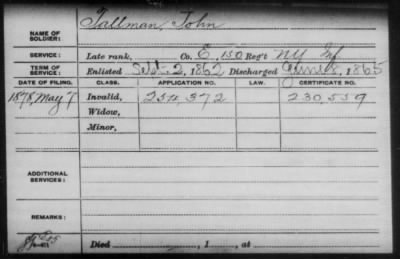 Tallman, John
NAME OF SOLDIER:
SERVICE: Late rank, Co. E, 150 Reg't N.Y. Inf
TERM OF SERVICE: Enlisted Sept. 2, 1862 Discharged June 8, 1865
DATE OF FILING. CLASS. APPLICATION NO. LAW. CERTIFICATE NO.
1878, May 7 Invalid, 254,372 230,559
Widow,
Minor,
ADDITIONAL SERVICES:
REMARKS:
Died , 1 , at